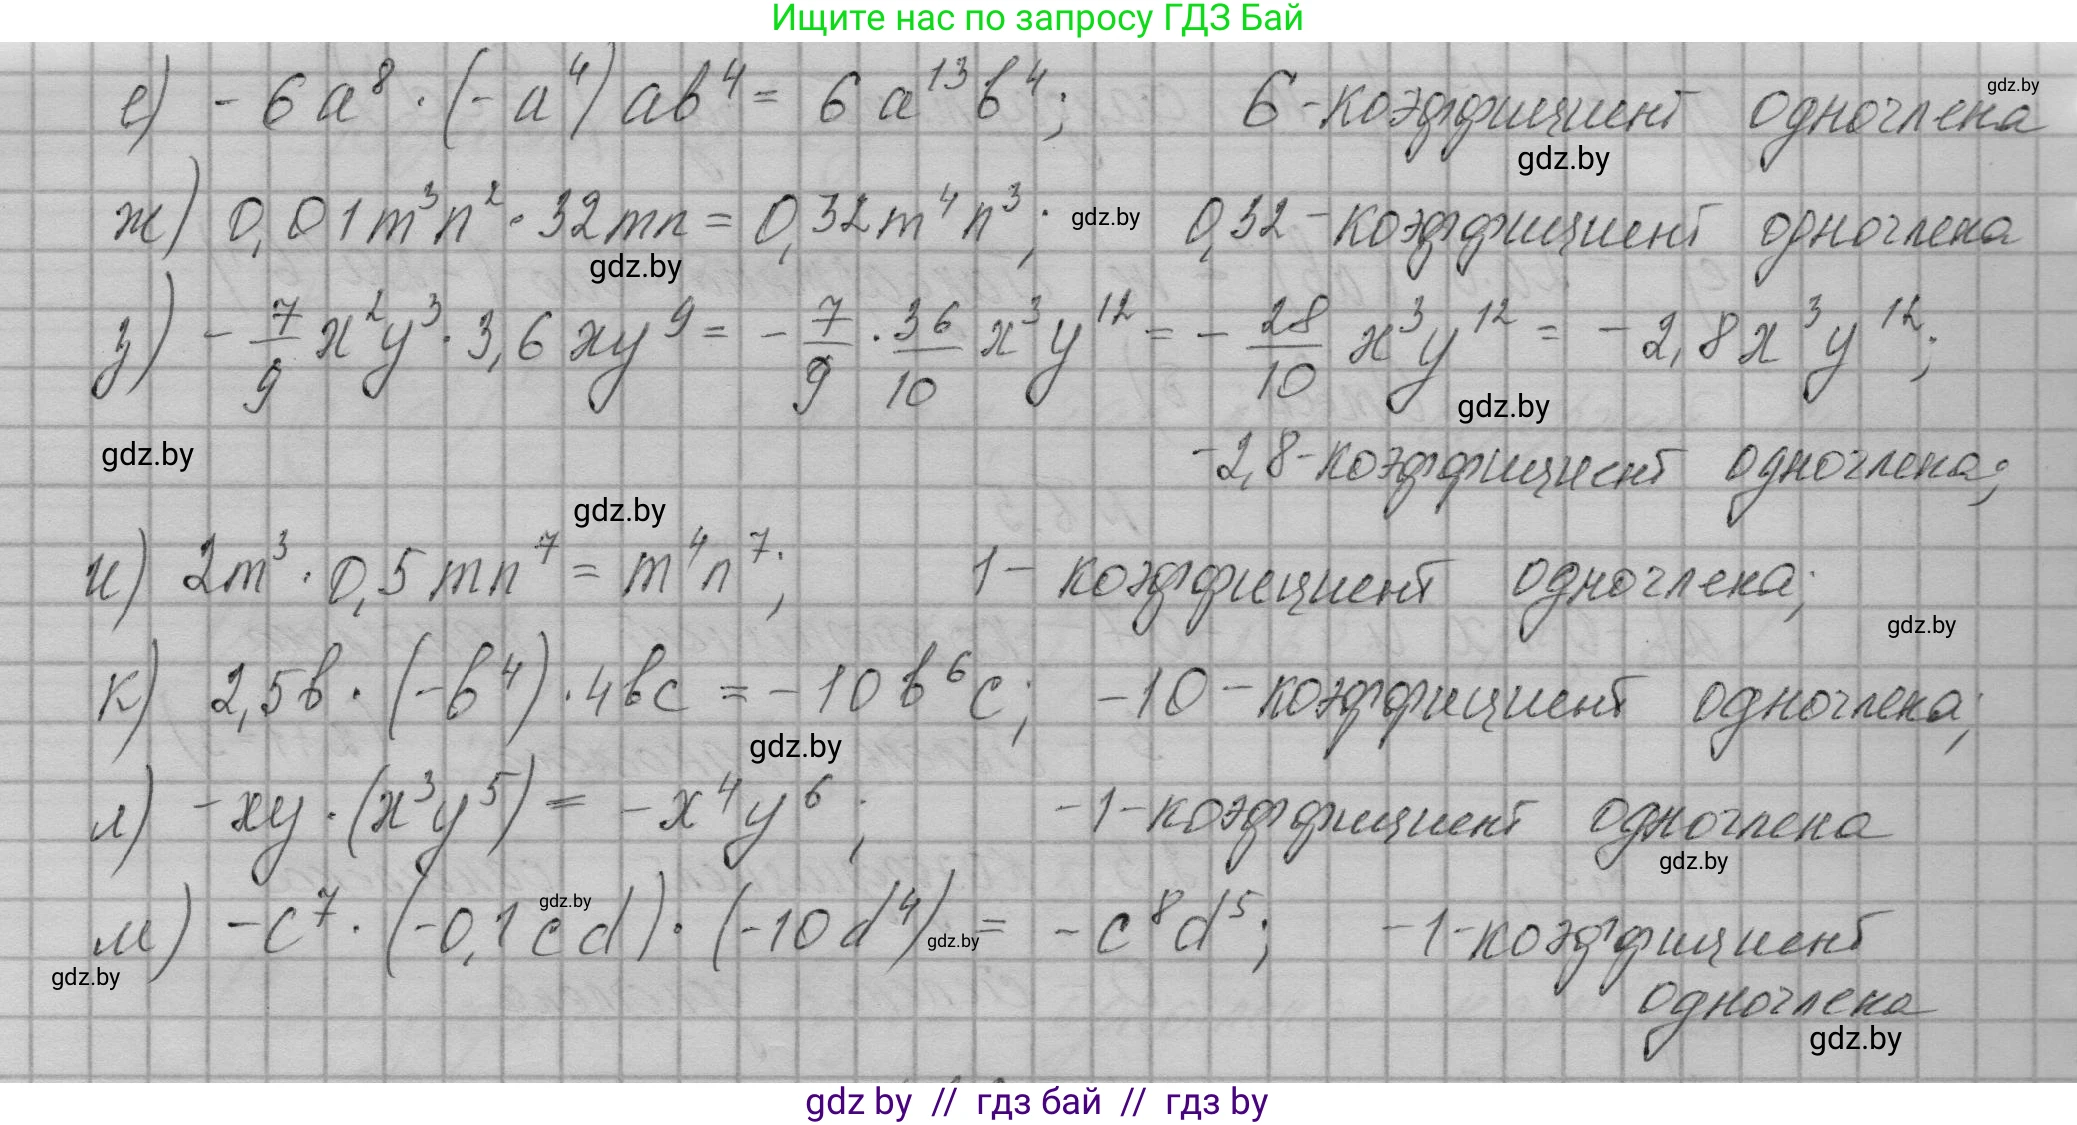 Ищите нас по запросу ГДЗ Бай
е) -6a⁸ · (-a⁴) ab⁴ = 6a¹³b⁴; 6 - коэффициент одночлена
gdz.by
gdz.by
ж) 0,01m³n² · 32mn = 0,32m⁴n³; gdz.by 0,32 - коэффициент одночлена
gdz.by
з) -7/9 x²y³ · 3,6xy⁹ = -7/9 · 36/10 x³y¹² = -28/10 x³y¹² = -2,8x³y¹²;
gdz.by
gdz.by -2,8 - коэффициент одночлена;
gdz.by
и) 2m³ · 0,5mn⁷ = m⁴n⁷; 1 - коэффициент одночлена;
gdz.by
к) 2,5b · (-b⁴) · 4bc = -10b⁶c; -10 - коэффициент одночлена;
gdz.by
л) -xy · (x³y⁵) = -x⁴y⁶; -1 - коэффициент одночлена
gdz.by
gdz.by
м) -c⁷ · (-0,1cd) · (-10d⁴) = -c⁸d⁵; -1 - коэффициент
gdz.by
gdz.by
одночлена
gdz.by
gdz by // гдз бай // гдз by